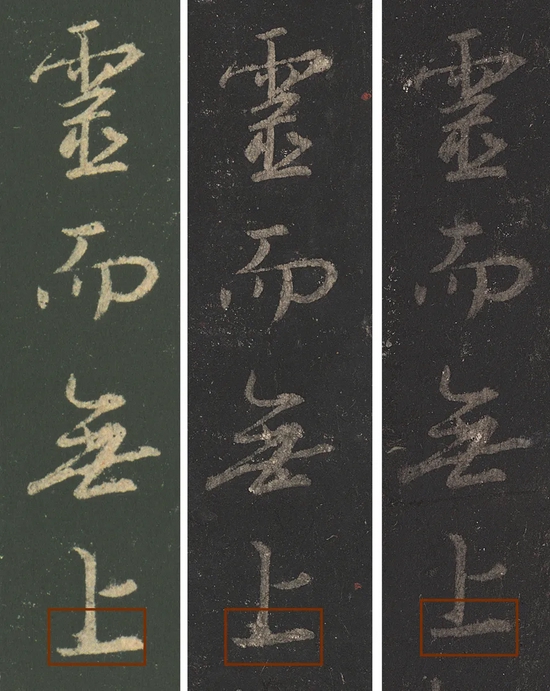 靈而無上
靈而無上
靈而無上